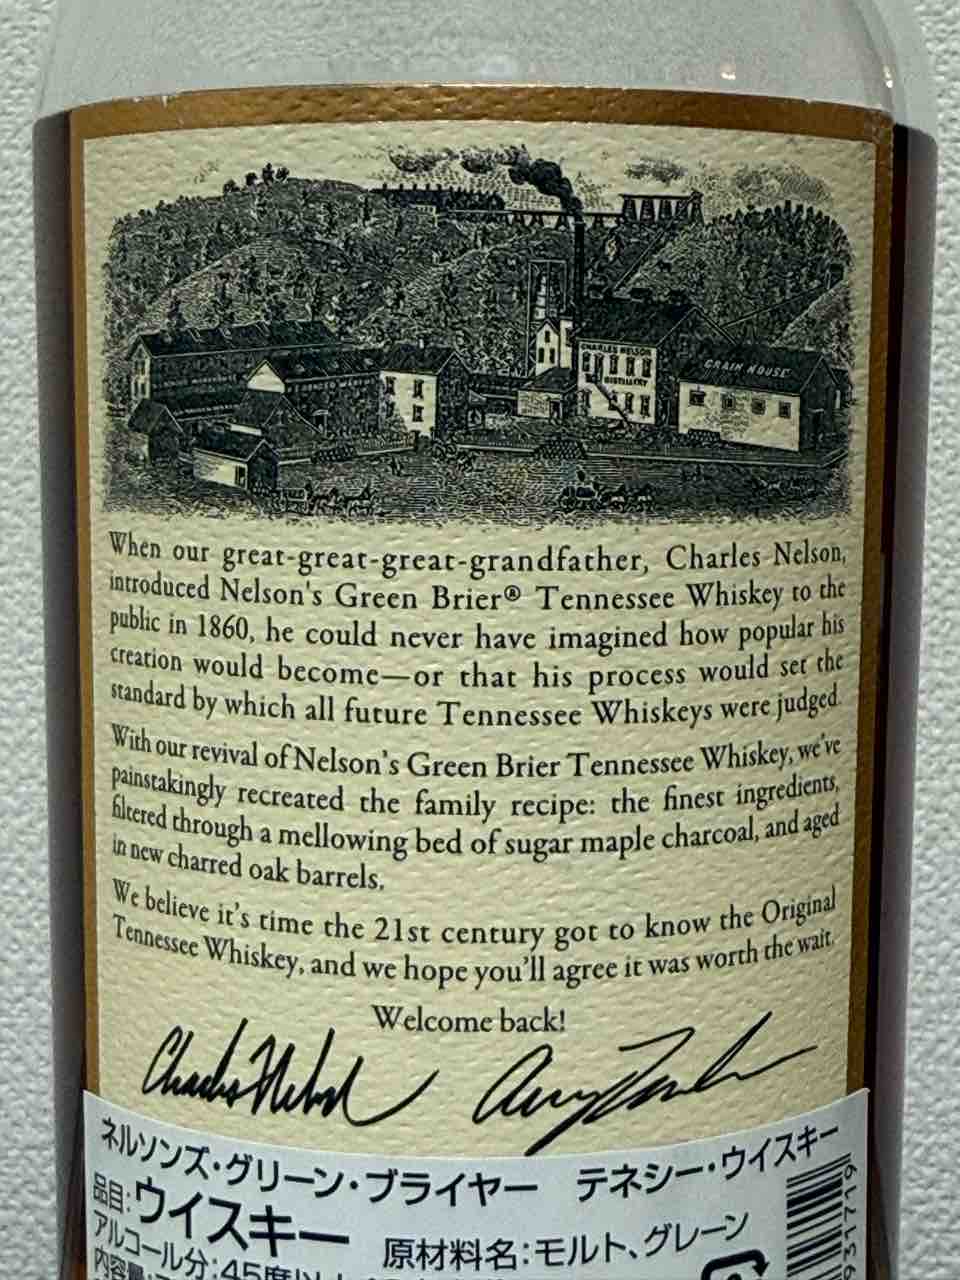 CHARLES NELSON
DISTILLERY
GRAIN HOUSE
When our great-great-great-grandfather, Charles Nelson,
introduced Nelson's Green Brier® Tennessee Whiskey to the
public in 1860, he could never have imagined how popular his
creation would become—or that his process would set the
standard by which all future Tennessee Whiskeys were judged.
With our revival of Nelson's Green Brier Tennessee Whiskey, we've
painstakingly recreated the family recipe: the finest ingredients,
filtered through a mellowing bed of sugar maple charcoal, and aged
in new charred oak barrels.
We believe it's time the 21st century got to know the Original
Tennessee Whiskey, and we hope you'll agree it was worth the wait.
Welcome back!
Charles Nelson
ネルソンズ・グリーン・ブライヤー テネシー・ウイスキー
品目:ウイスキー
原材料名:モルト、グレーン
アルコール分:45度以上
内容量:
931719